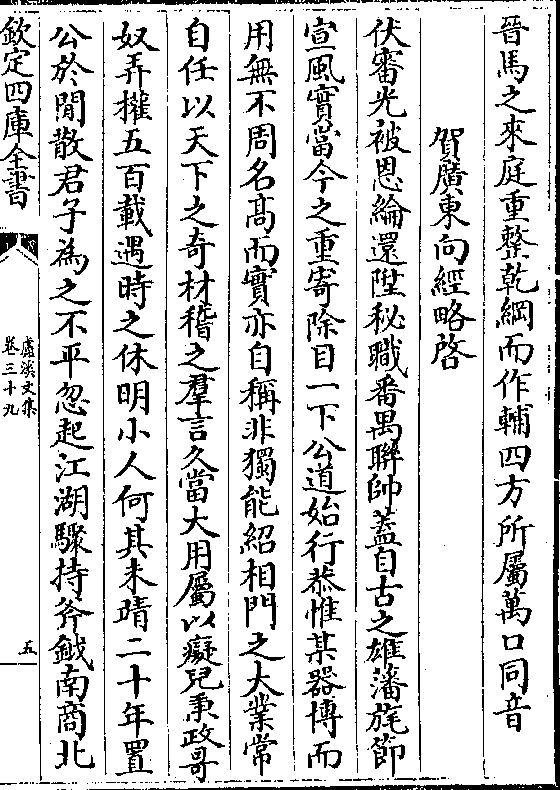 晉馬之來庭重整乾綱而作輔四方所屬萬口同音
賀廣東向經略啓
伏審光被恩綸還陞秘職番禺聯帥蓋自古之雄藩旄節
宣風實當今之重寄除目一下公道始行恭惟某器博而
用無不周名髙而實亦自稱非獨能紹相門之大業常
自任以天下之奇材稽之羣言久當大用屬以癡兒秉政哥
奴弄權五百載遇時之休明小人何其未晴二十年置
公於閒散君子為之不平忽起江湖驟持斧鉞南商北
欽定四庫全書
盧溪文集
卷三十九
五